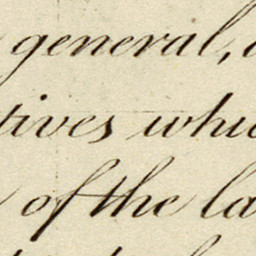 general,
tives whi
of the la